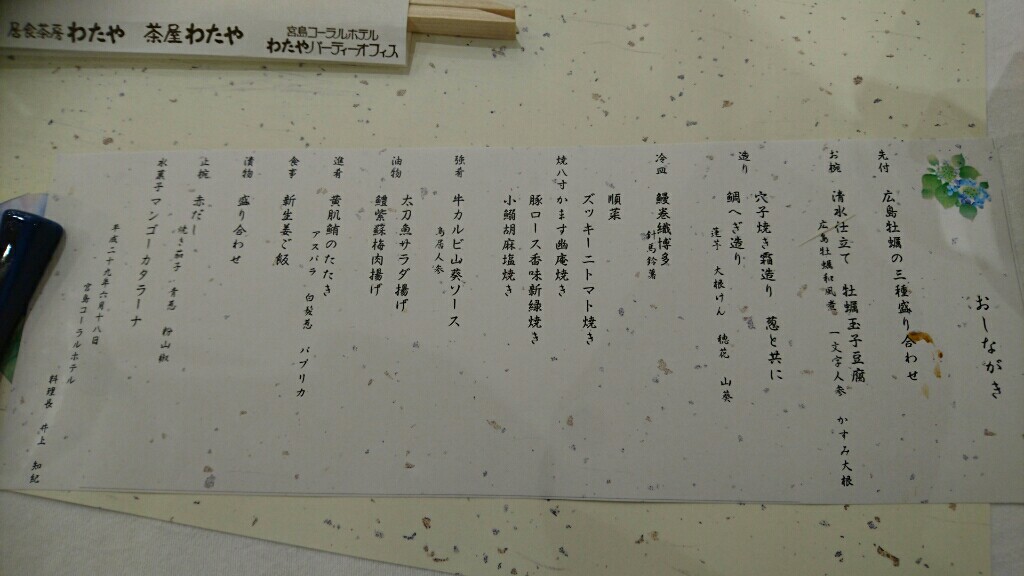 居食茶房わたや 茶屋わたや
宮島コーラルホテル
わたやパーティーオフィス
おしながき
先付 広島牡蠣の三種盛り合わせ
お椀 清水仕立て 牡蠣玉子豆腐
広島牡蠣和風煮 一文字人参 かすみ大根
造り 穴子焼き霜造り 葱と共に
鯛へぎ造り
蓮芋 大根けん 穂花 山葵
冷皿 鰻巻織博多
針馬鈴薯
順菜
焼八寸 ズッキーニトマト焼き
かます幽庵焼き
豚ロース香味新緑焼き
小鰯胡麻塩焼き
強肴 牛カルビ山葵ソース
鳥居人参
油物 太刀魚サラダ揚げ
鱧紫蘇梅肉揚げ
進肴 黄肌鮪のたたき
アスパラ 白髪葱 パプリカ
食事 新生姜ご飯
漬物 盛り合わせ
止椀 赤だし
焼き茄子 青葱 粉山椒
水菓子 マンゴーカタラーナ
平成二十九年六月十八日
宮島コーラルホテル
料理長 井上 知紀